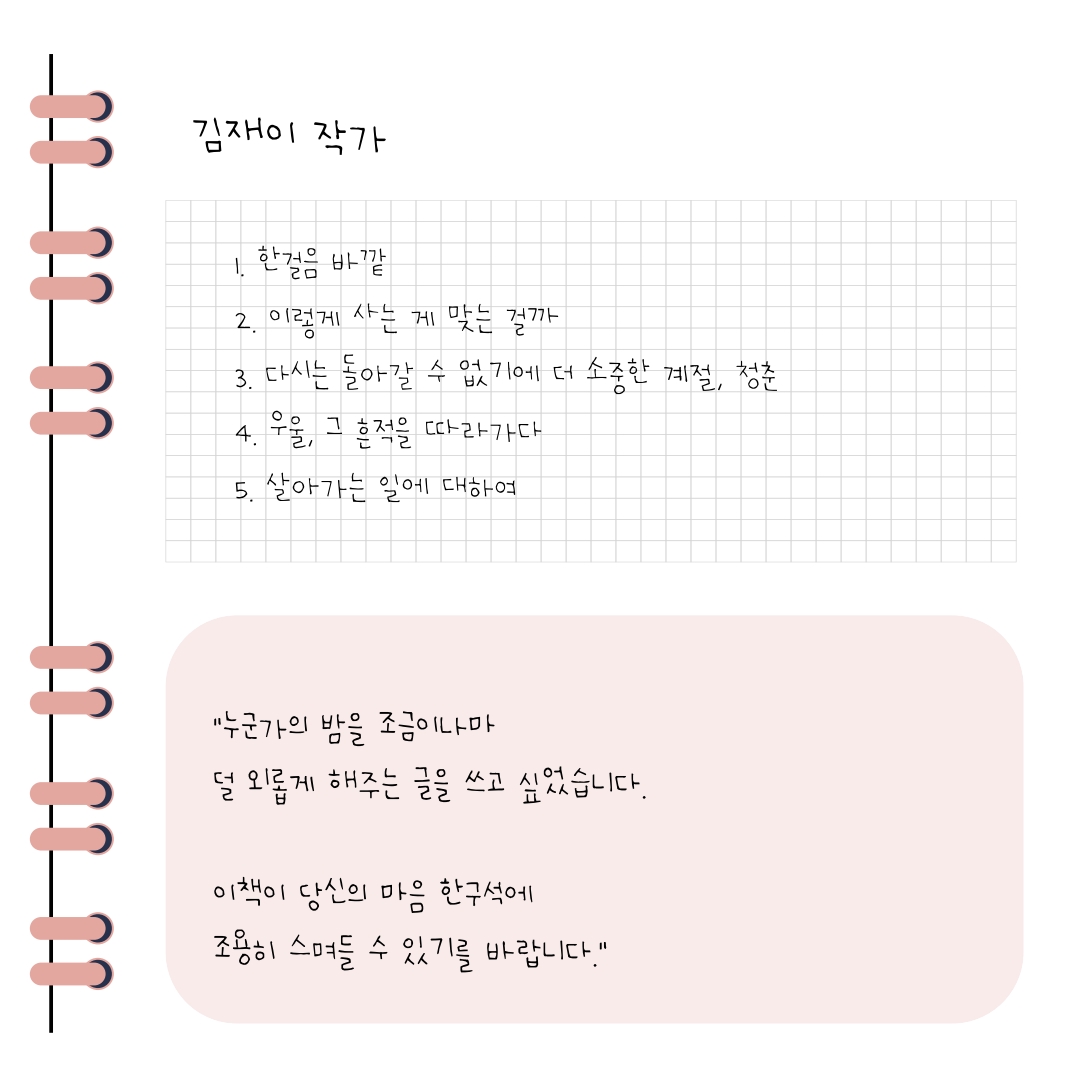 김재이 작가
1. 한걸음 바깥
2. 이렇게 사는 게 맞는 걸까
3. 다시는 돌아갈 수 없기에 더 소중한 계절, 청춘
4. 우울, 그 흔적을 따라가다
5. 살아가는 일에 대하여
"누군가의 밤을 조금이나마
덜 외롭게 해주는 글을 쓰고 싶었습니다.
이책이 당신의 마음 한구석에
조용히 스며들 수 있기를 바랍니다."